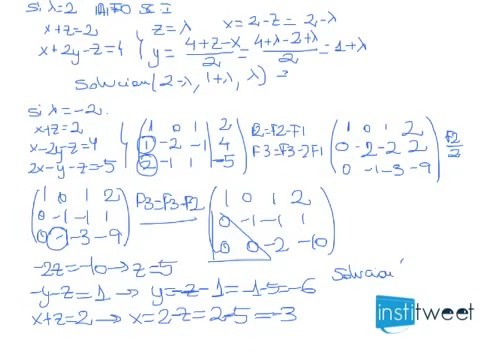 si λ=2
x+z=2
x+2y-z=4
z=λ x=2-z=2-λ
y=(4+z-x)/2=(4+λ-2+λ)/2=1+λ
Solucion (2-λ, 1+λ, λ)
si λ=-2.
x+z=2
x-2y-z=4
2x-y-z=-5
1 0 1 2
1 -2 -1 4
2 -1 1 -5
F2=F2-F1
F3=F3-2F1
1 0 1 2
0 -2 -2 2
0 -1 -3 -9
F2/2
1 0 1 2
0 -1 -1 1
0 -1 -3 -9
F3=F3-F2
1 0 1 2
0 -1 -1 1
0 0 -2 -10
-2z=-10→z=5
-y-z=1 → y=-z-1=-1-5=-6
x+z=2 → x=2-z=2-5=-3
Solucion
institweet